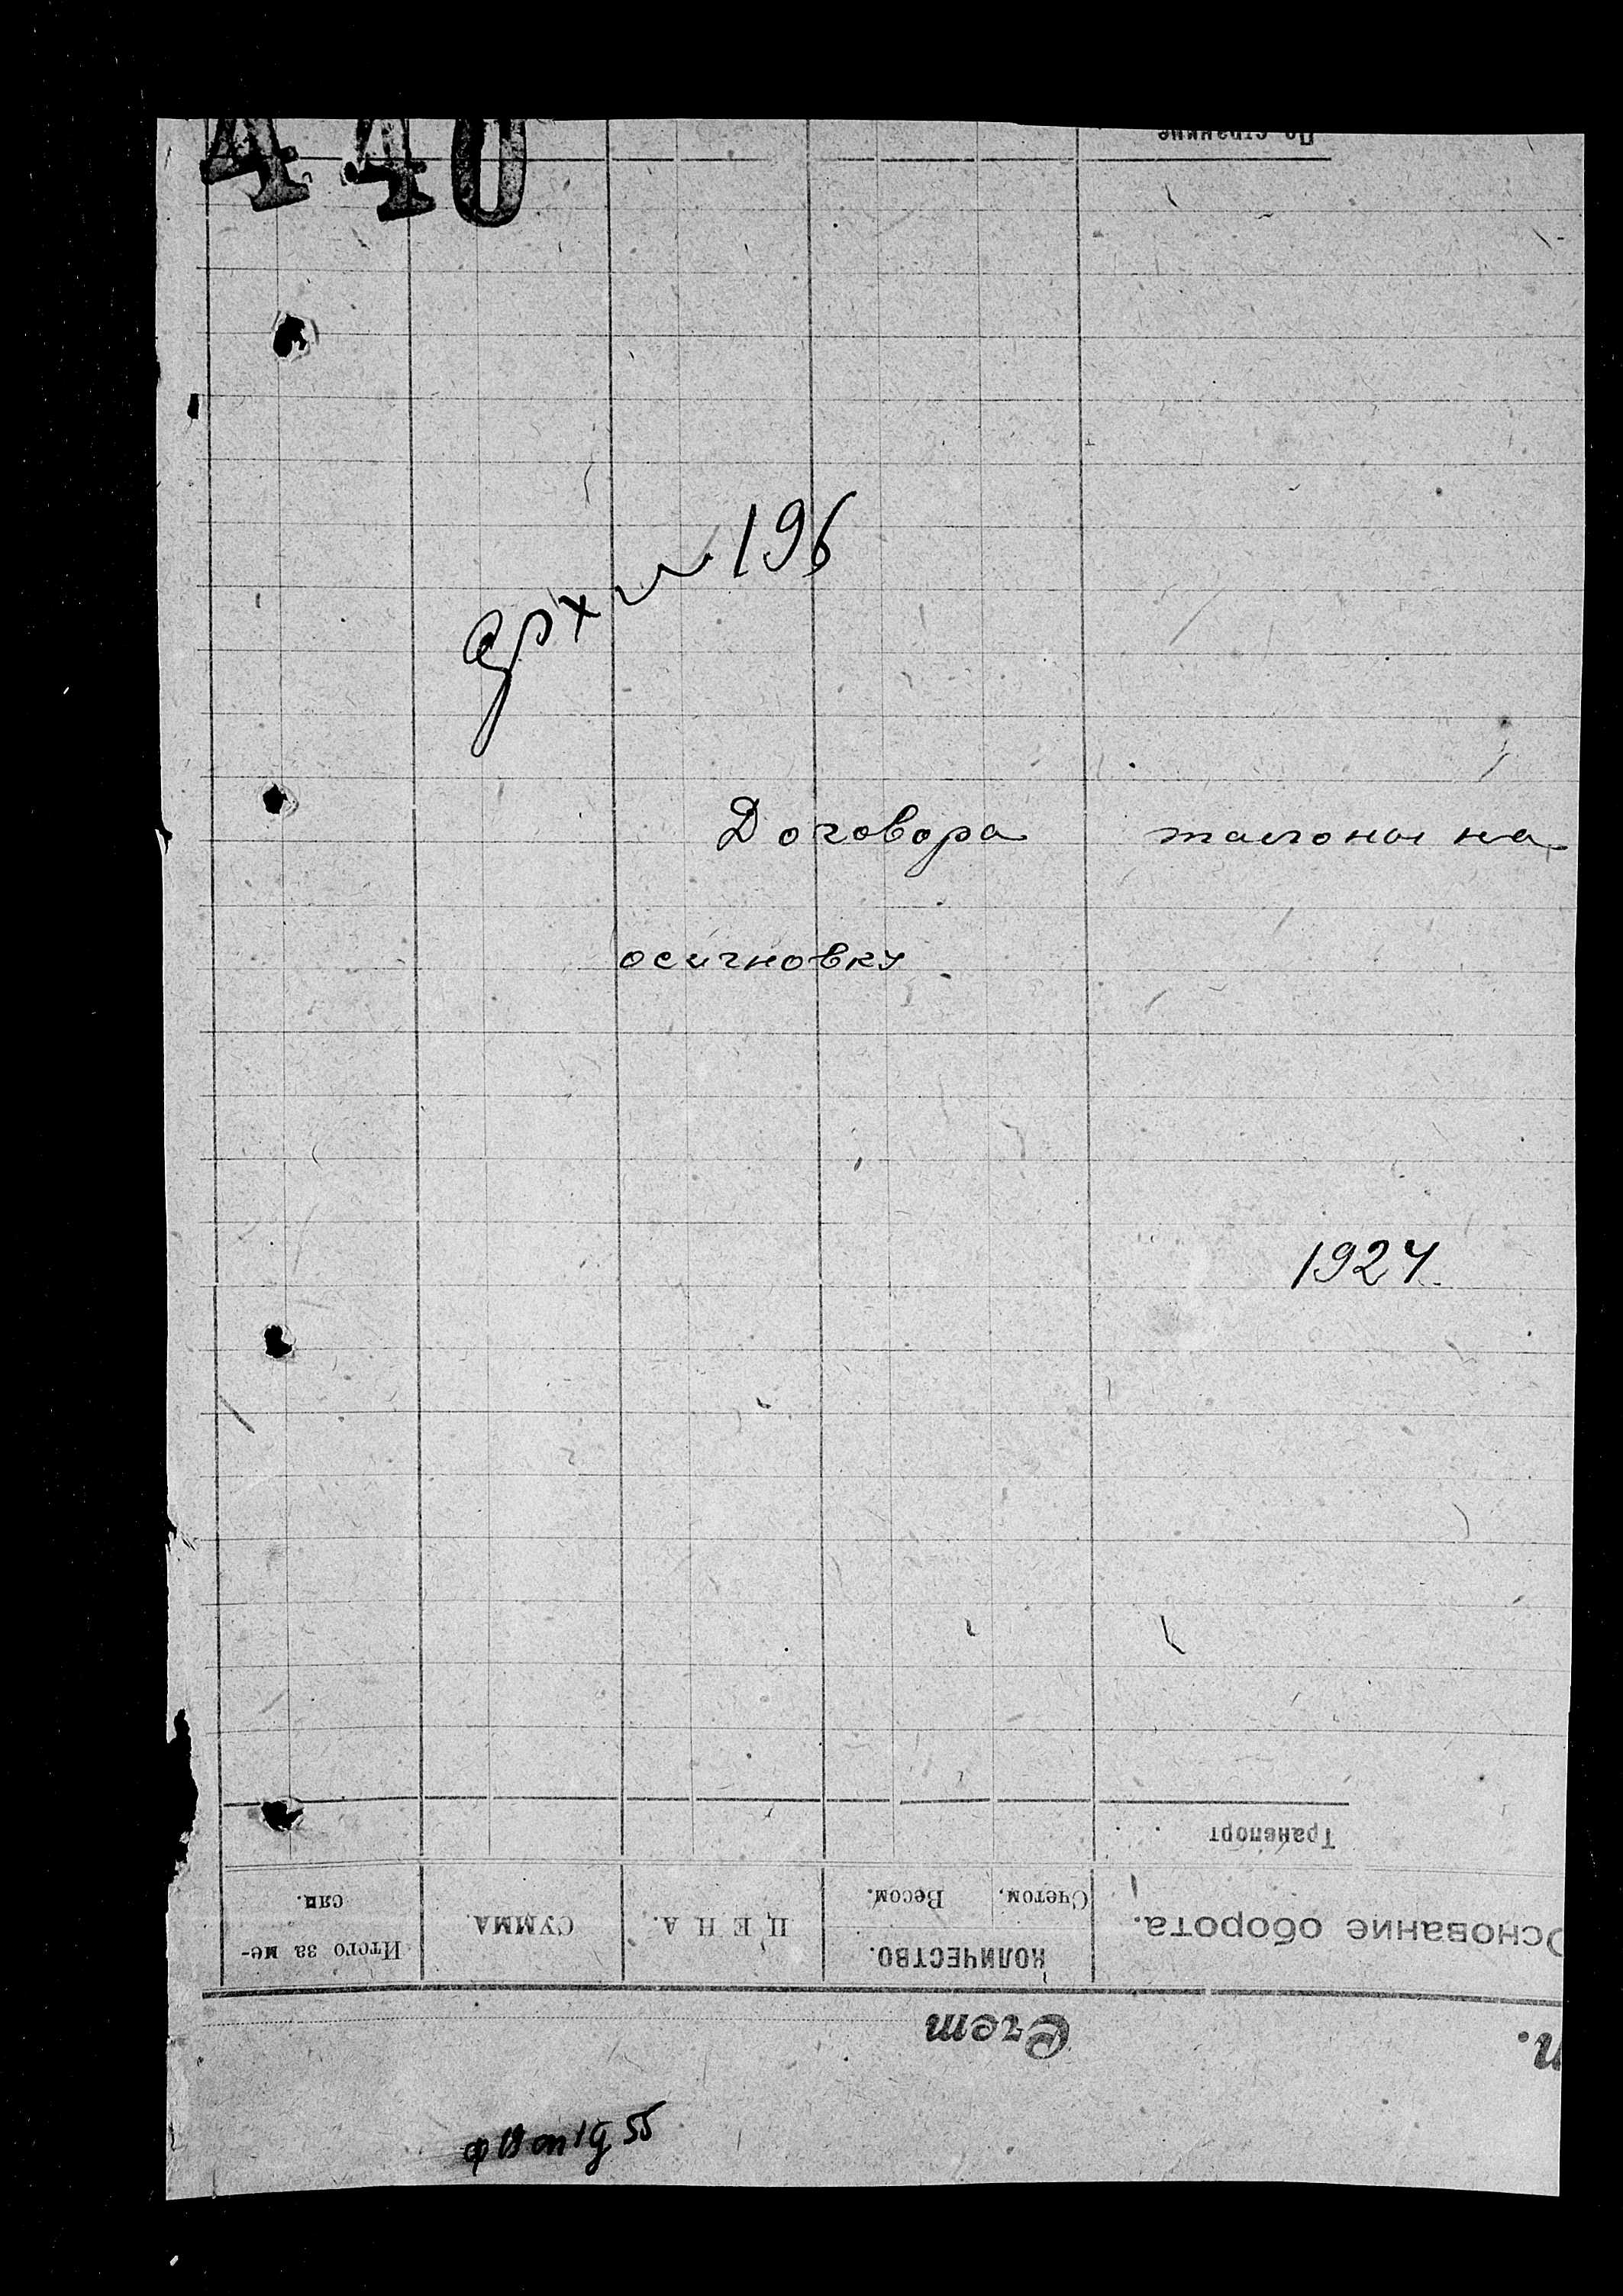 440
По странице
арх № 196
Договора талоны на
осигновку
1924
Транспорт
Основание оборота.
КОЛИЧЕСТВО.
Счетом.
Весом.
ЦЕНА.
СУММА.
Итого за ме-
сяц.
Счет
ф 19 оп 1 д 55